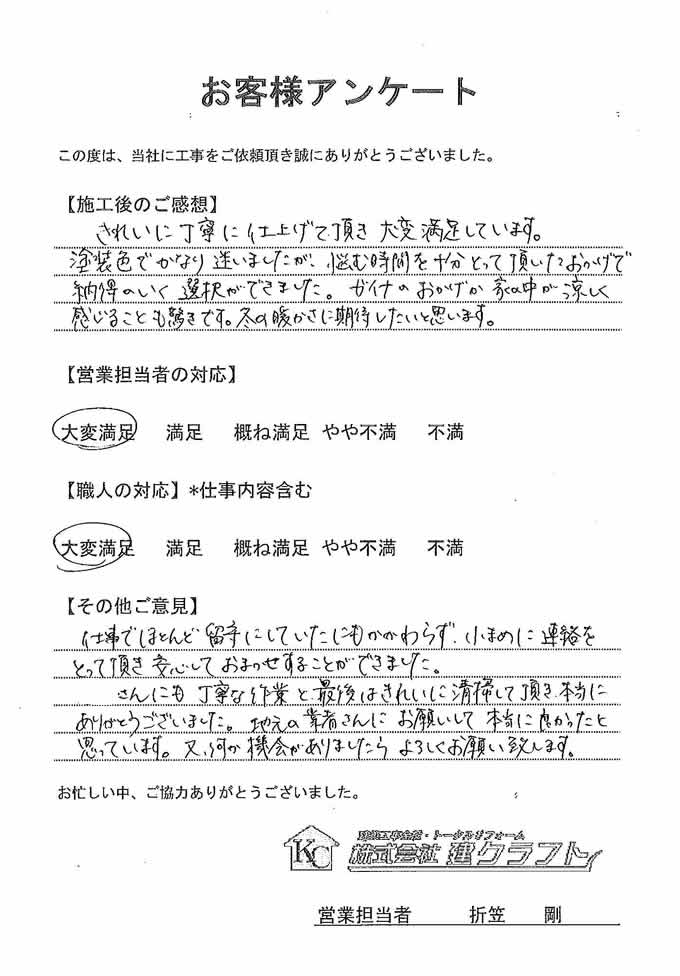 お客様アンケート
この度は、当社に工事をご依頼頂き誠にありがとうございました。
【施工後のご感想】
きれいに丁寧に仕上げて頂き 大変満足しています。
塗装色でかなり迷いましたが、悩む時間を十分とって頂いたおかげで
納得のいく 選択ができました。ガイナのおかげか 家の中が涼しく
感じることも驚きです。冬の暖かさに期待したいと思います。
【営業担当者の対応】
大変満足 満足 概ね満足 やや不満 不満
【職人の対応】*仕事内容含む
大変満足 満足 概ね満足 やや不満 不満
【その他ご意見】
仕事でほとんど留守にしていたにもかかわらず、小まめに連絡を
とって頂き安心しておまかせすることができました。
さんにも丁寧な作業と最後はきれいに清掃して頂き、本当に
ありがとうございました。地元の業者さんにお願いして本当に良かったと
思っています。又、何か機会がありましたら よろしくお願い致します。
お忙しい中、ご協力ありがとうございました。
建築工事全般・トータルリフォーム
KC 株式会社 建クラフト
営業担当者 折笠 剛